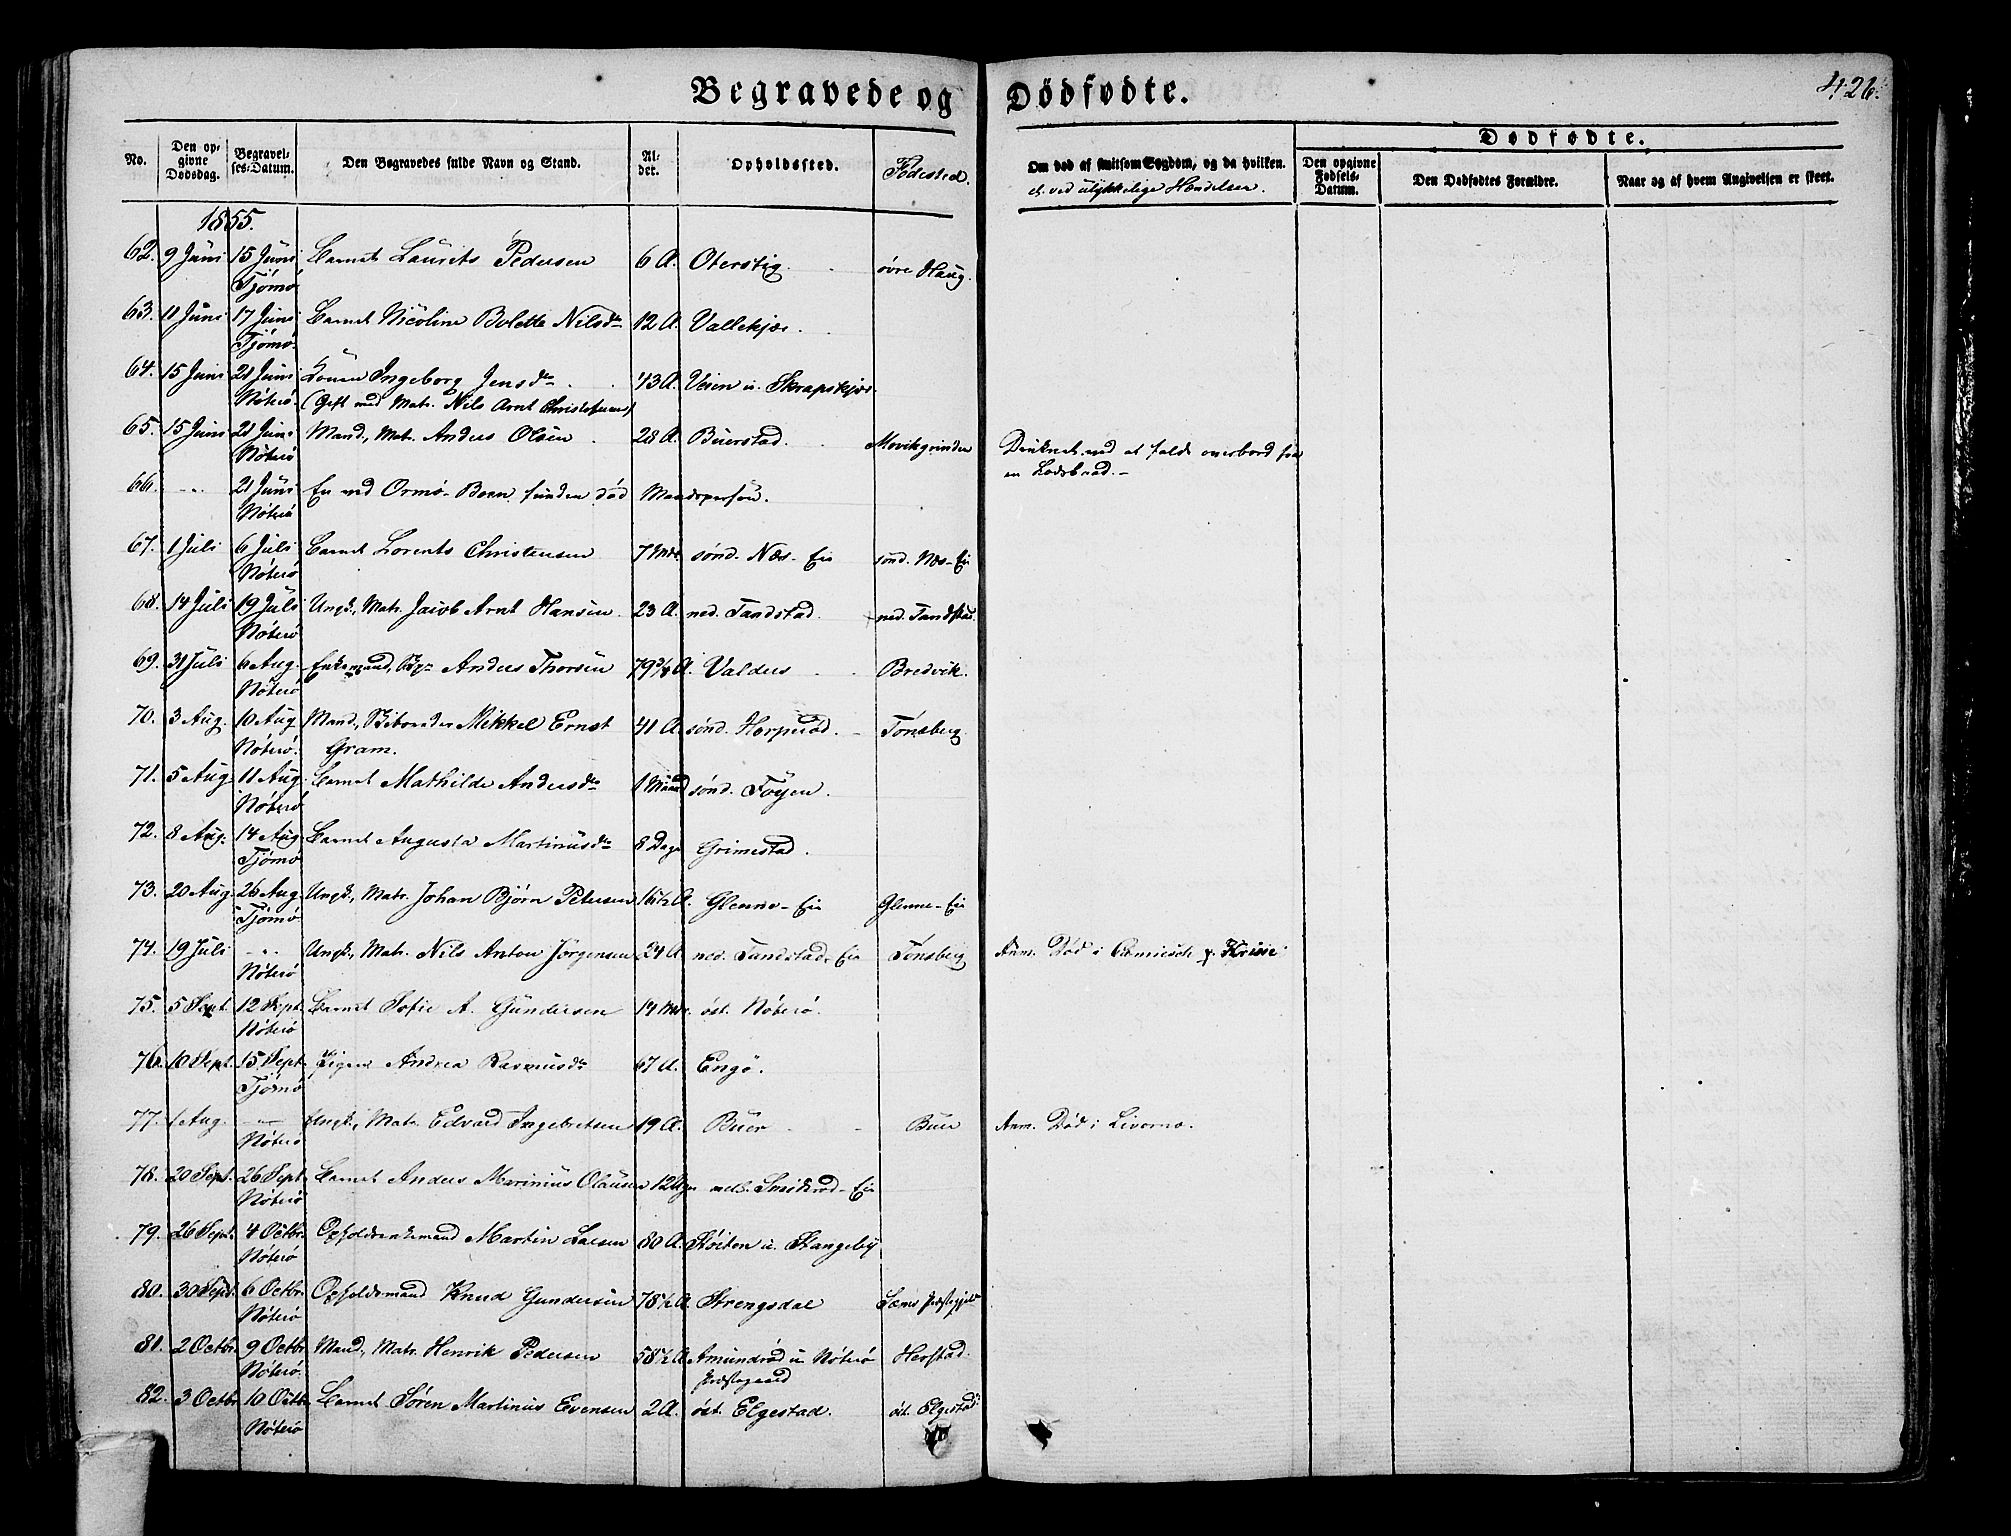 Begravede og Dödfödte. 426.
No. Den opgivne Dødsdag. Begravelses-Datum. Den Begravedes fulde Navn og Stand. Alder. Opholdssted. Fødested. Om død af smitsom Sygdom, og da hvilken. el. ved ulykkelige Hændelser. Dødfødte. Den opgivne Fødsels-Datum. Den Dødfødtes Forældre. Naar og af hvem Angivelsen er skeet.
1855.
62. 9 Juni 15 Juni Barnet Laurits Pedersen 6 A. Oterstig. øvre Haug.
Tjømø
63. 11 Juni 17 Juni Barnet Nicoline Bolette Nilsdtr 12 A. Vallekjær.
Tjømø.
64. 15 Juni 21 Juni Konen Ingeborg Jensdtr 43 A. Veien u. Skrapskjær.
Nöterö. (Gift med Matr. Nils Arnt Christensen)
65. 15 Juni 21 Juni Mand, Matr. Anders Olsen 28 A. Buerstad. Movikgrinden Druknet ved at falde overbord fra
Nöterö en Lodsbaad.
66. -"- 21 Juni En ved Ormø-Boen funden død Mandsperson.
Nöterö
67. 1 Juli 6 Juli Barnet Lorents Christensen 7 Mdr. sönd. Næs-Eie sönd. Næs-Eie
Nöterö
68. 14 Juli 19 Juli Ungk., Matr. Jacob Arnt Hansen. 23 A. ned. Tandstad. ned. Tandstad.
Nöterö
69. 31 Juli 6 Aug. Enkemand, Anders Thorsen 79 3/4 A. Valders Bredvik.
Nöterö
70. 3 Aug. 10 Aug. Mand, Skibsreder Mikkel Ernst 41 A. sönd. Herperöd. Tönsberg.
Nöterö. Gram.
71. 5 Aug. 11 Aug. Barnet Mathilde Andersdtr 1 Maaned sönd. Föyen.
Nöterö
72. 8 Aug. 14 Aug. Barnet Augusta Martinusdtr 8 Dage Grimestad.
Tjömö
73. 20 Aug. 26 Aug. Ungk., Matr. Johan Björn Petersen 16 1/2 A. Glenne-Eie Glenne-Eie
Tjömö
74. 19 Juli -"- Ungk., Matr. Nils Anton Jörgensen 24 A. ned. Tandstad-Eie Tönsberg Anm. Död i
Nöterö
75. 5 Sept. 12 Sept. Barnet Sofie A. Gundersen 14 Mdr. öst. Nöterö.
Nöterö
76. 10 Sept. 15 Sept. Pigen Andrea Rasmusdtr 67 A. Engö.
Tjömö
77. 1 Aug. -"- Ungk., Matr. Edvard Ingebretsen 19 A. Buer Buer Anm. Död i Livorno.
Nöterö
78. 20 Sept. 26 Sept. Barnet Anders Marinius Olausen 12 Uger mell. Smidsröd-Eie
Nöterö
79. 26 Sept. 4 Octbr. Opholdsenkemand Martin Larsen 80 A. Stöiten u. Stangeby
Nöterö
80. 30 Sept. 6 Octbr. Opholdsmand Knud Gundersen 78 1/2 A. Strengsdal Sems Præstegjeld
Nöterö
81. 2 Octbr. 9 Octbr. Mand, Matr. Henrik Pedersen 58 1/2 A. Amundröd u. Nöterö Herstad.
Nöterö. Præstegaard
82. 3 Octbr. 10 Octbr. Barnet Sören Martinius Evensen 2 A. öst. Elgestad. öst. Elgestad.
Nöterö